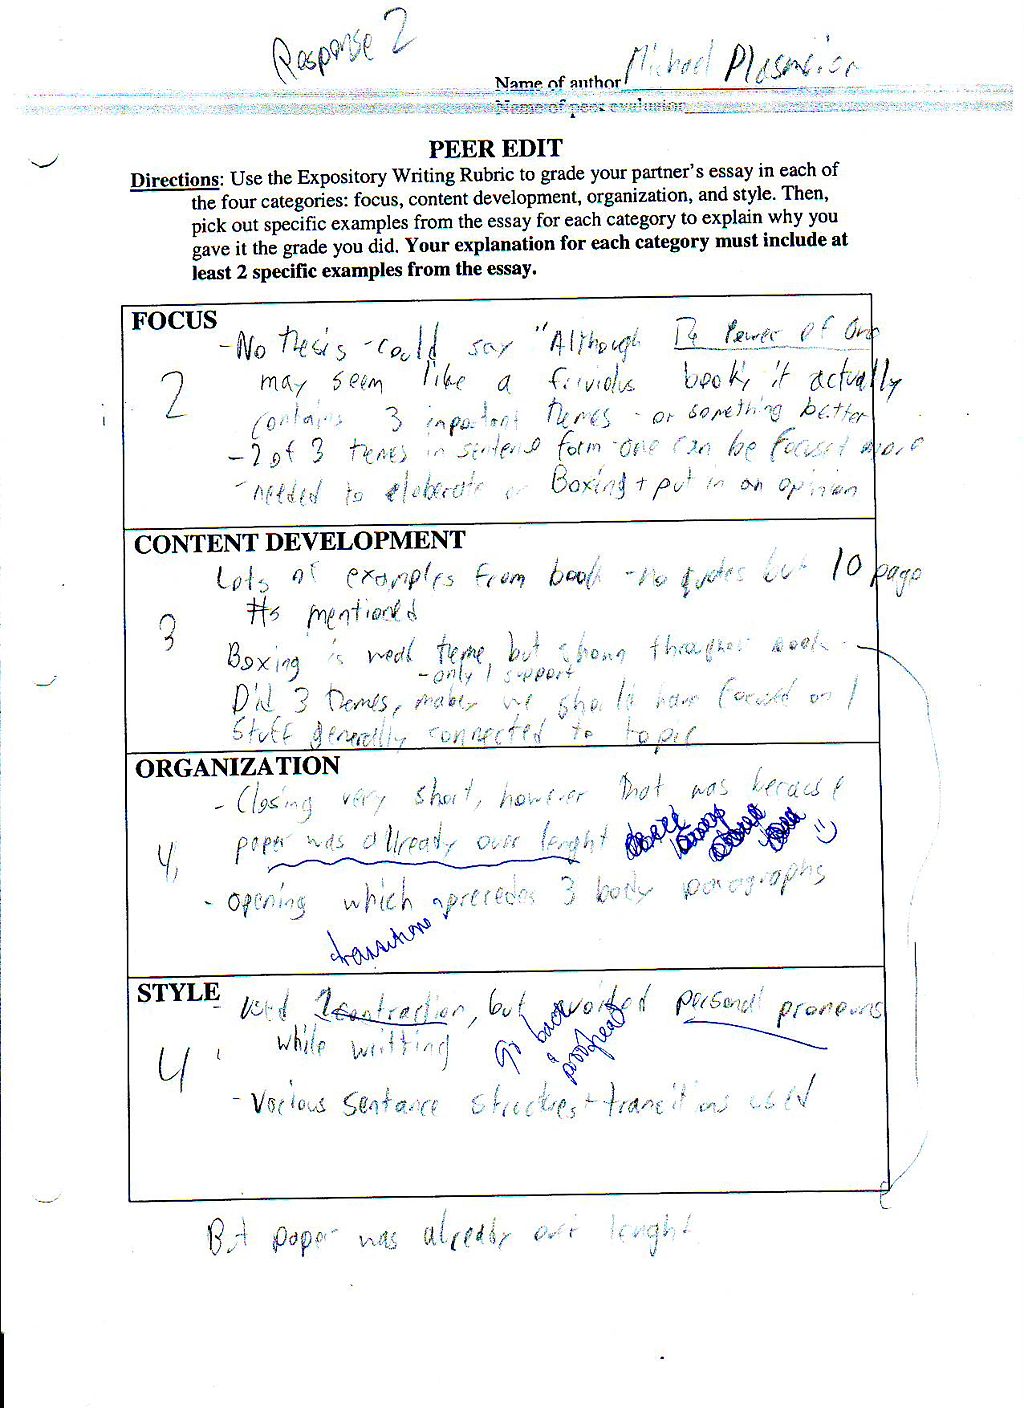 Response 2
Name of author Michael Plasmeier
Name of peer evaluation
PEER EDIT
Directions: Use the Expository Writing Rubric to grade your partner's essay in each of
the four categories: focus, content development, organization, and style. Then,
pick out specific examples from the essay for each category to explain why you
gave it the grade you did. Your explanation for each category must include at
least 2 specific examples from the essay.
FOCUS
- No thesis - could say "Although The Power of One
2 may seem like a frividus book, it actually
contains 3 important themes - or something better
- 2 of 3 themes in sentense form - one can be focused more
- needed to elaberate on Boxing + put in an opinion
CONTENT DEVELOPMENT
Lots of examples from book - no quotes but 10 page
#s mentioned
3
Boxing is weak theme, but strong throughout book -
- only 1 support
Did 3 themes, maybe we should have focused on 1
Stuff generally connected to topic
ORGANIZATION
- Closing very short, however that was because
4 paper was allready over lenght
- opening which precedes 3 body paragraphs
transitions
STYLE
- used 2 contraction, but avoided personal pronouns
while writting
go back & proofread
4
- Various sentance structres + transitions used
But paper was already over lenght